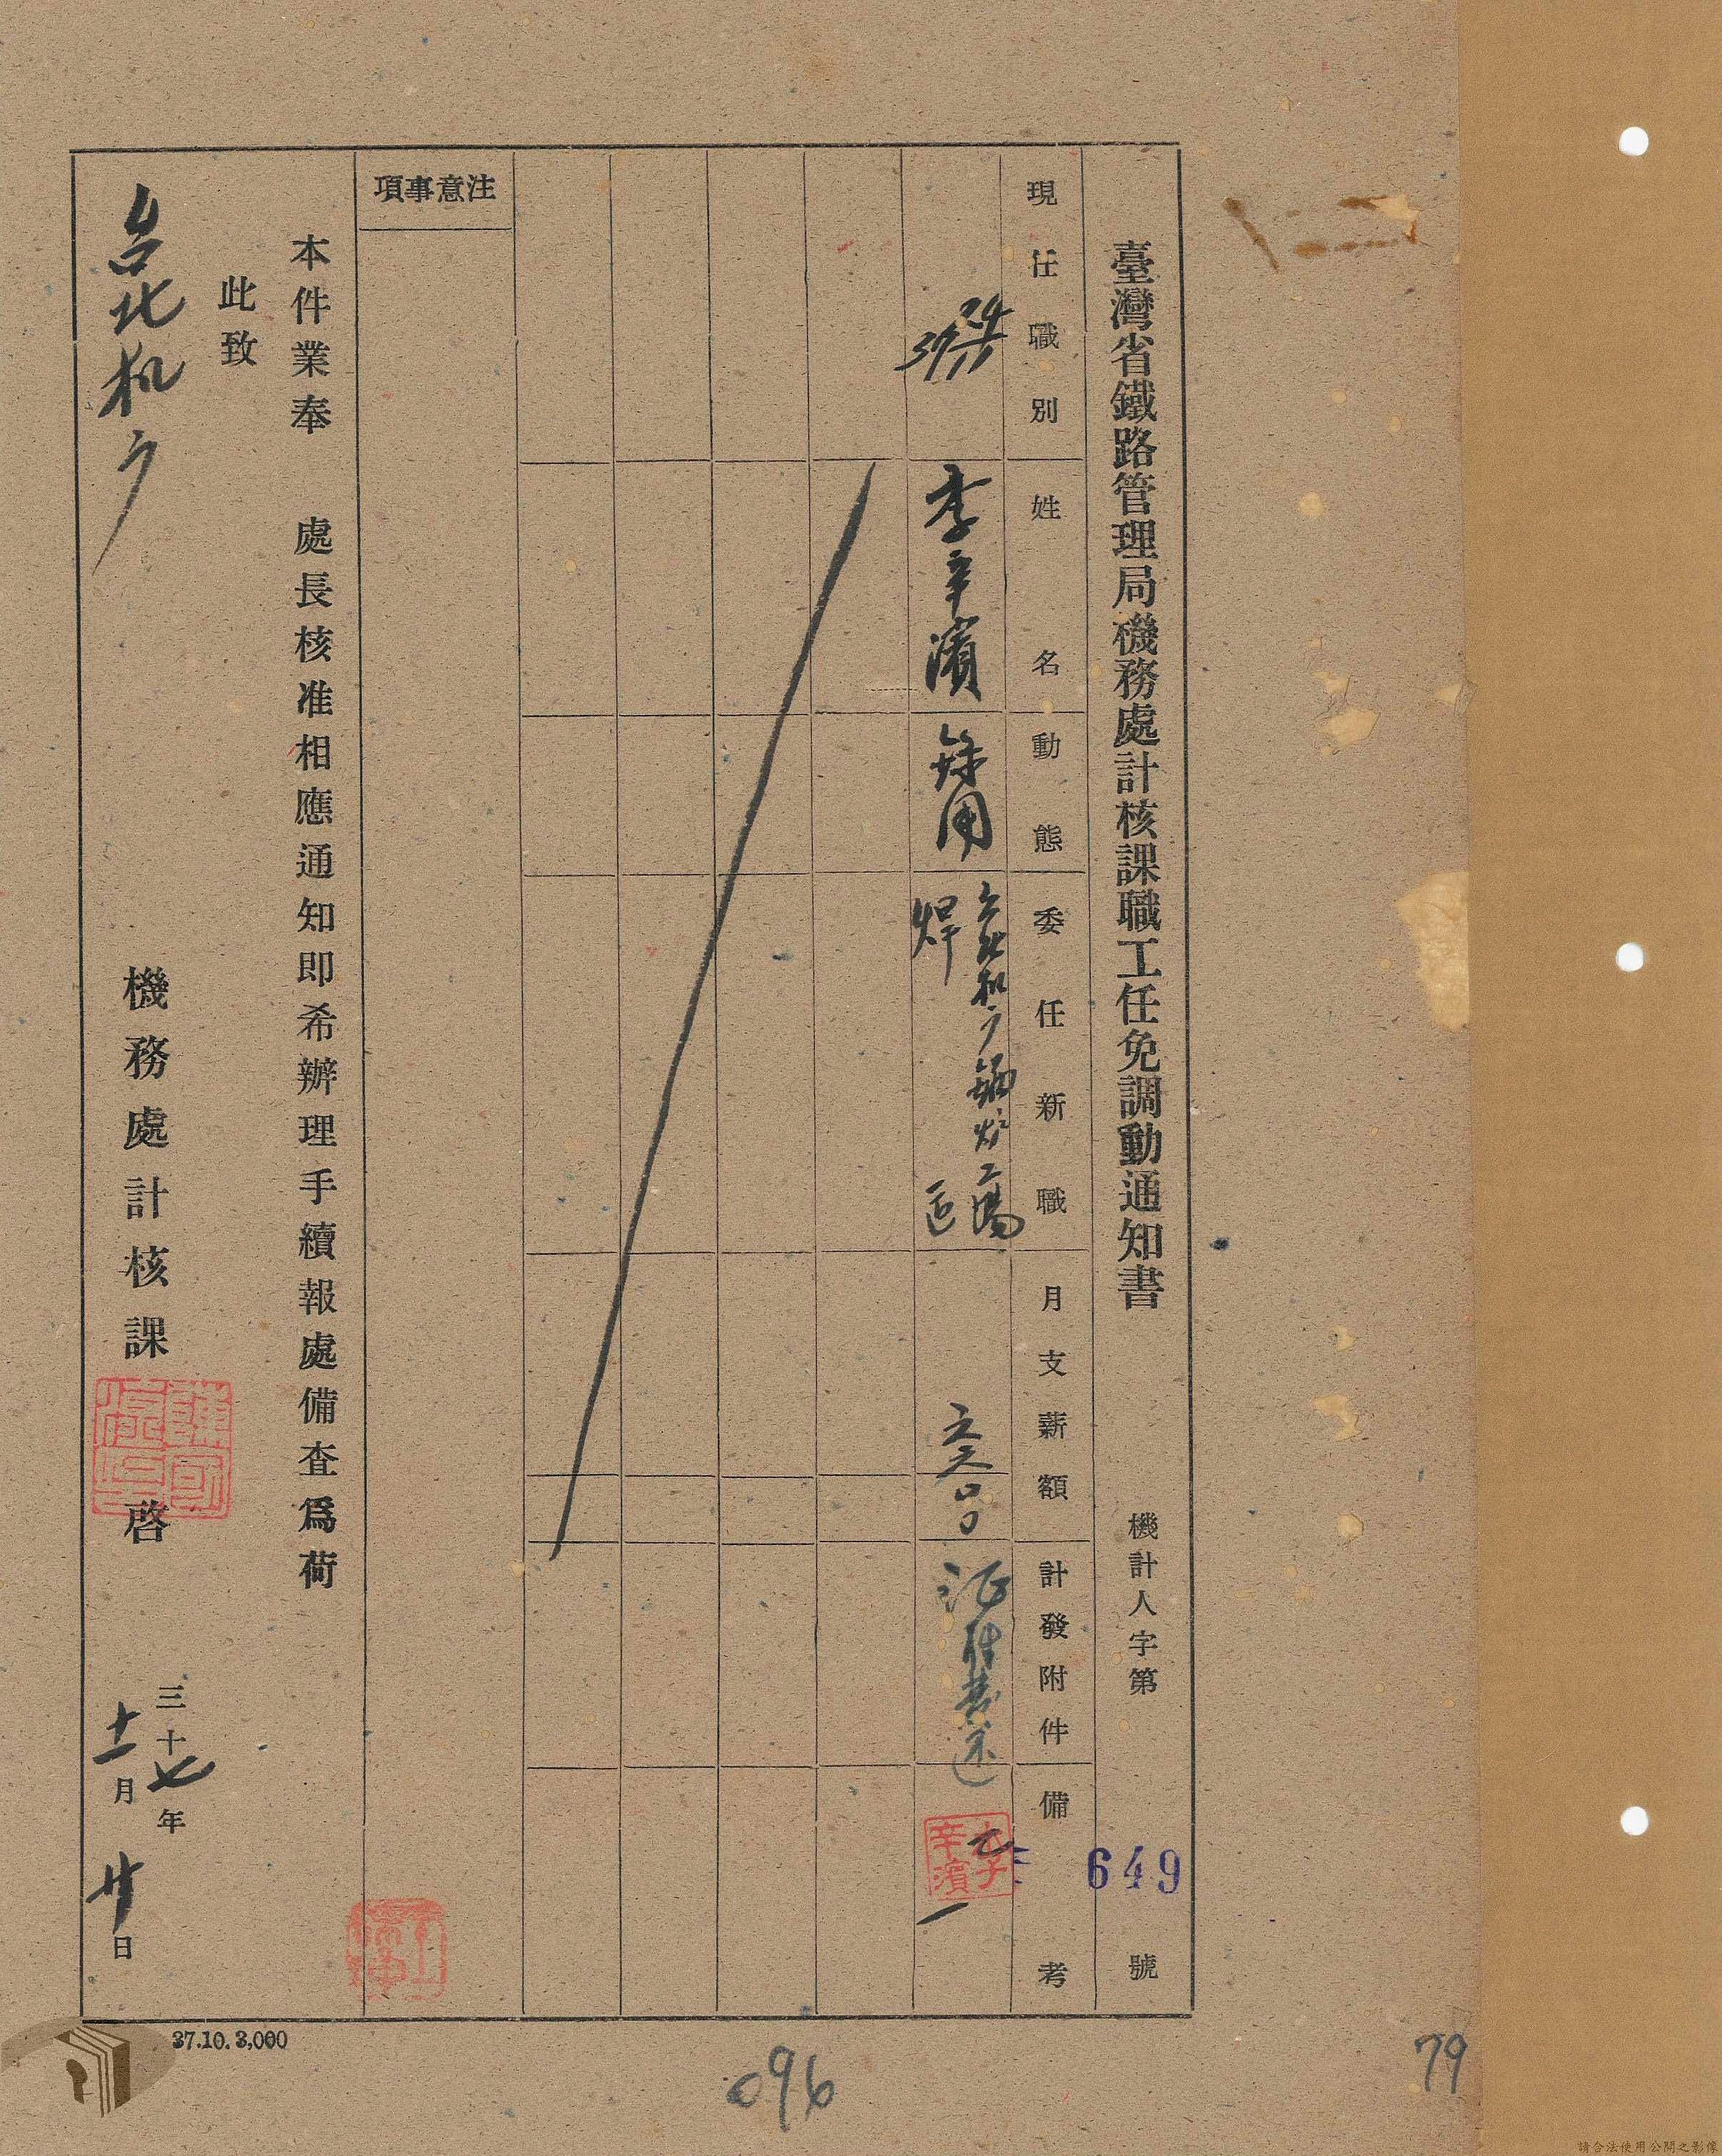 臺灣省鐵路管理局機務處計核課職工任免調動通知書
機計人字第 649 號
現任職別
姓名
動態
委任新職
月支薪額
計發附件
備考
李辛濱
錄用
台北机廠鍋炉工場
焊
李辛濱
注意事項
本件業奉 處長核准相應通知即希辦理手續報處備查爲荷
此致
台北机廠
機務處計核課 啓
三十七年
十一月廿日
37.10.3,000
096
79
請合法使用公開之影像